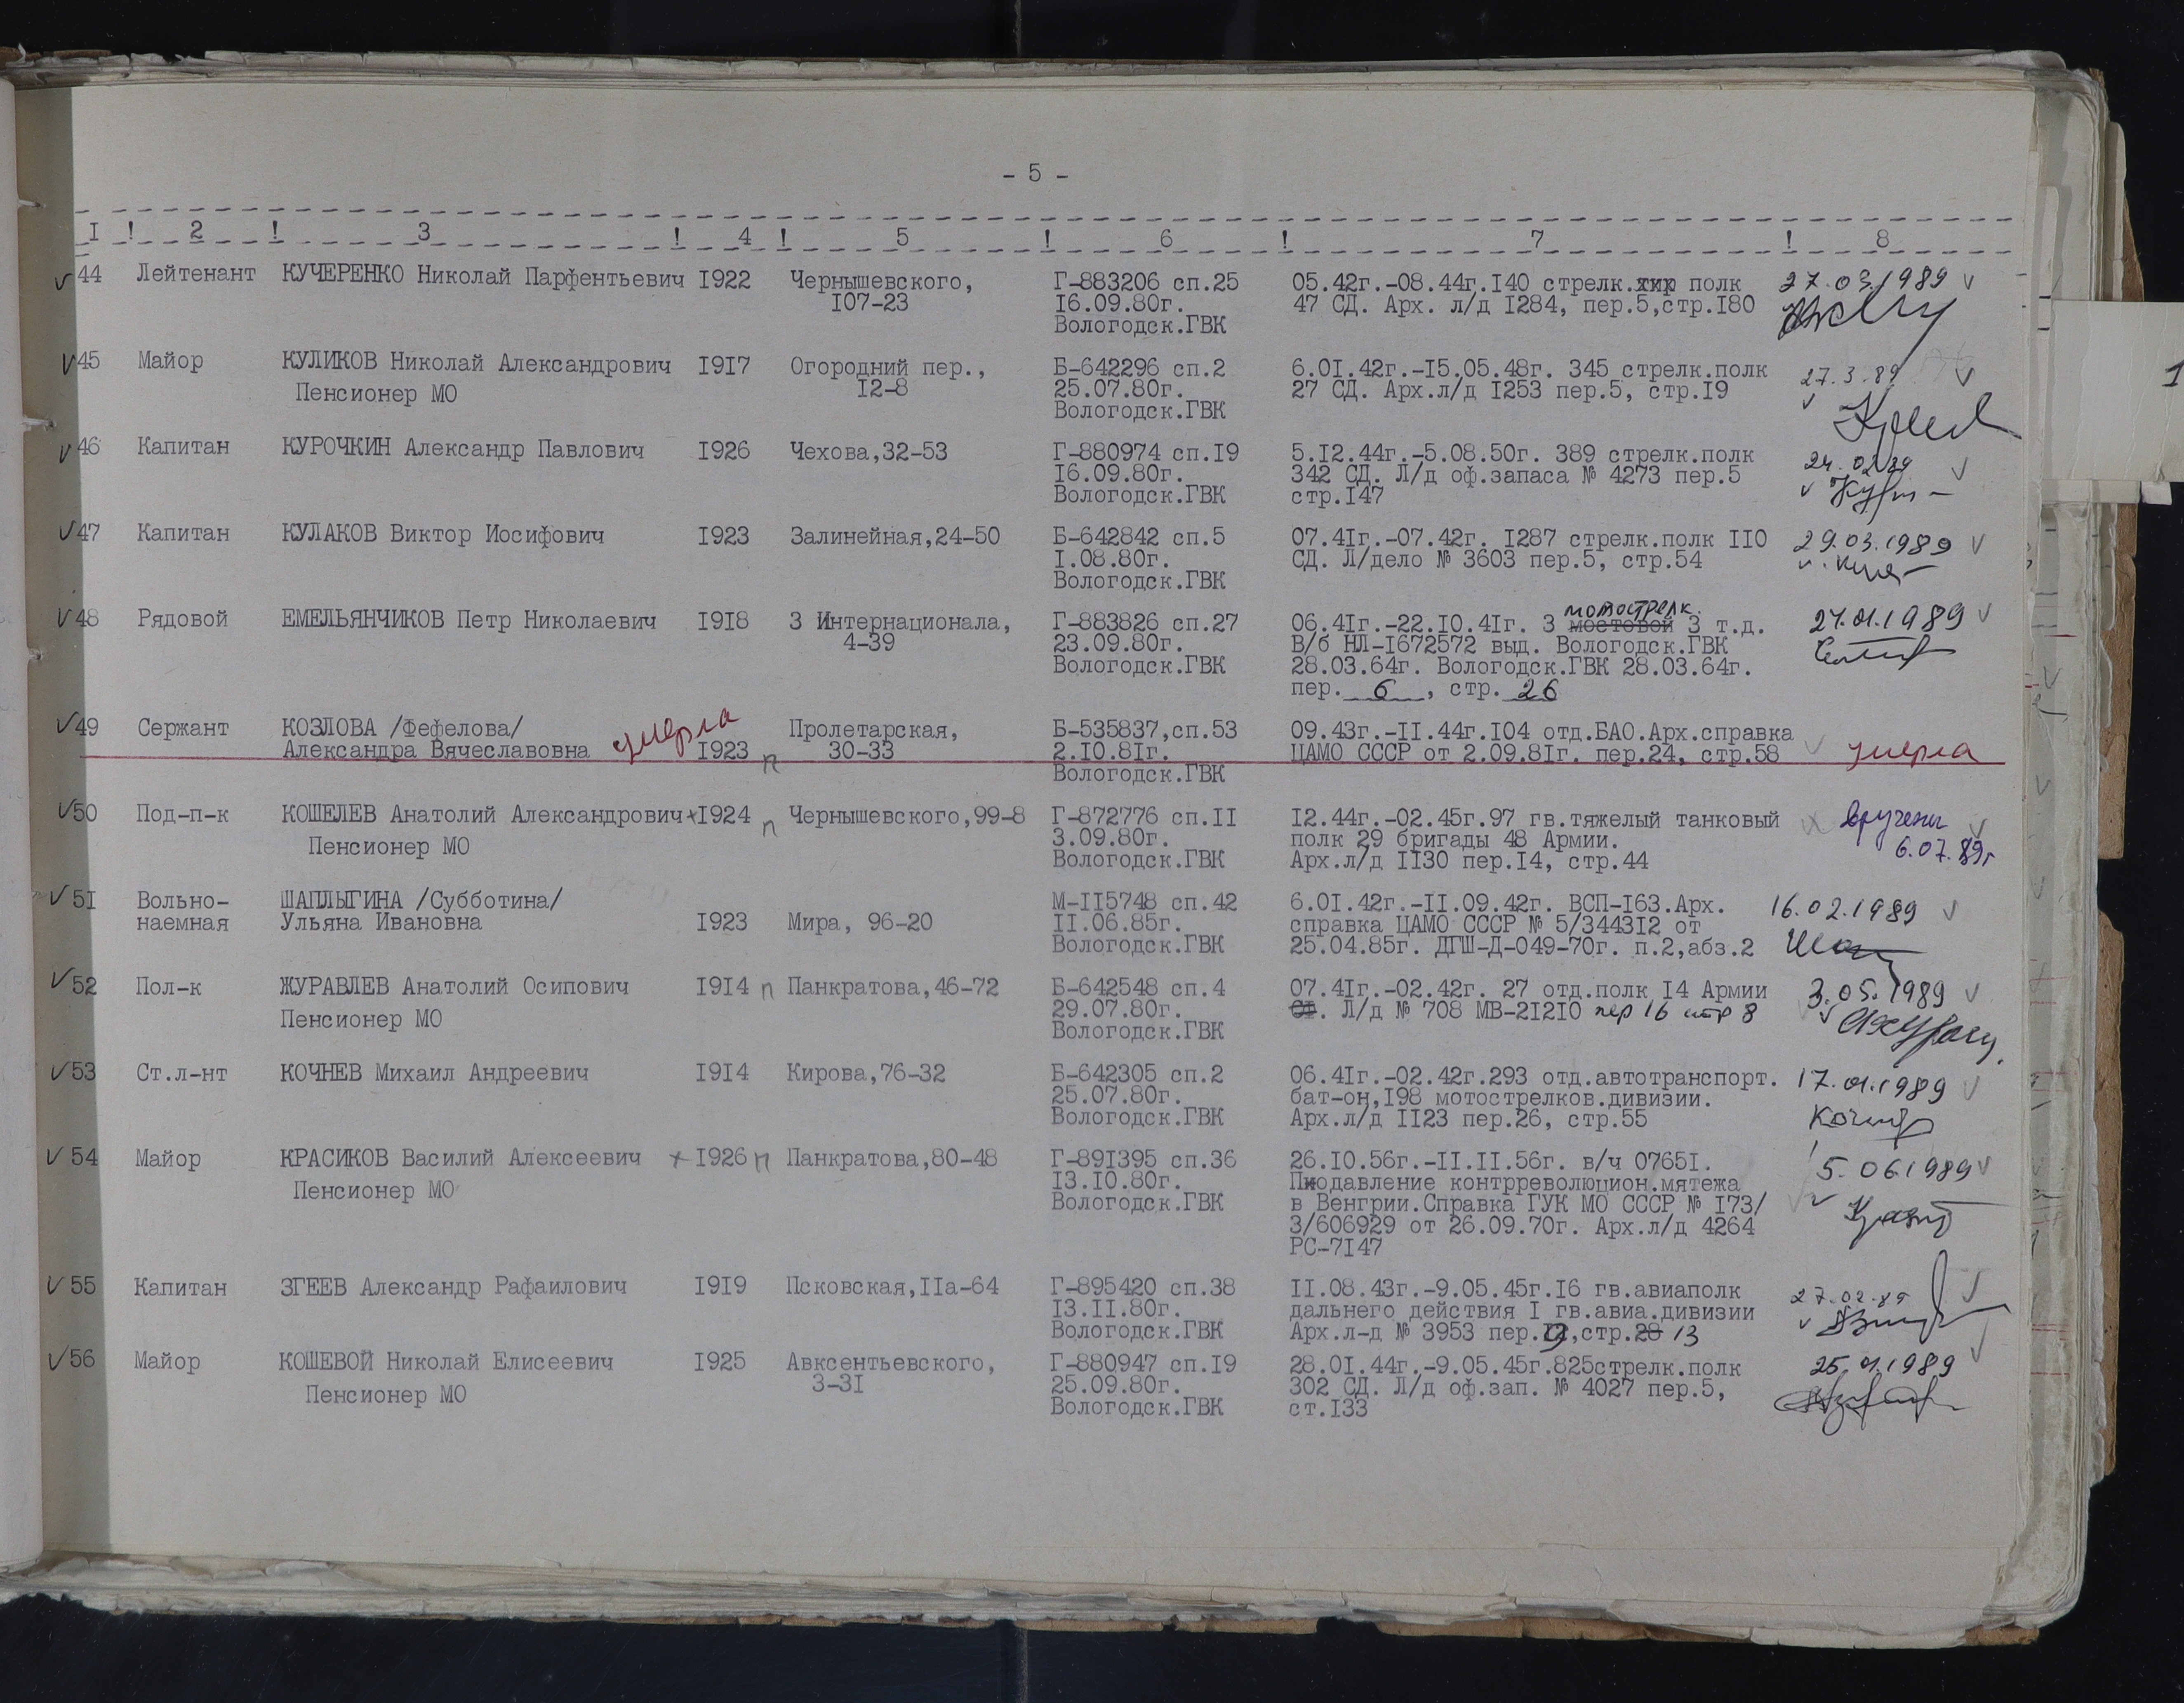 - 5 -
I ! 2 ! 3 ! 4 ! 5 ! 6 ! 7 ! 8
44 Лейтенант КУЧЕРЕНКО Николай Парфентьевич I922 Чернышевского, Г-883206 сп.25 05.42г.-08.44г.I40 стрелк. полк 27.03.1989
I07-23 I6.09.80г. 47 СД. Арх. л/д I284, пер.5,стр.I80
Вологодск.ГВК
45 Майор КУЛИКОВ Николай Александрович I9I7 Огородний пер., Б-642296 сп.2 6.0I.42г.-I5.05.48г. 345 стрелк.полк 27.3.89
Пенсионер МО I2-8 25.07.80г. 27 СД. Арх.л/д I253 пер.5, стр.I9
Вологодск.ГВК
46 Капитан КУРОЧКИН Александр Павлович I926 Чехова,32-53 Г-880974 сп.I9 5.I2.44г.-5.08.50г. 389 стрелк.полк 24.02.89
I6.09.80г. 342 СД. Л/д оф.запаса № 4273 пер.5
Вологодск.ГВК стр.I47
47 Капитан КУЛАКОВ Виктор Иосифович I923 Залинейная,24-50 Б-642842 сп.5 07.4Iг.-07.42г. I287 стрелк.полк II0 29.03.1989
I.08.80г. СД. Л/дело № 3603 пер.5, стр.54
Вологодск.ГВК
мотострелк.
48 Рядовой ЕМЕЛЬЯНЧИКОВ Петр Николаевич I9I8 3 Интернационала, Г-883826 сп.27 06.4Iг.-22.I0.4Iг. 3 мостовой 3 т.д. 27.01.1989
4-39 23.09.80г. В/б НЛ-I672572 выд. Вологодск.ГВК
Вологодск.ГВК 28.03.64г. Вологодск.ГВК 28.03.64г.
пер. 6 , стр. 26
49 Сержант КОЗЛОВА /Фефелова/ умерла Пролетарская, Б-535837,сп.53 09.43г.-II.44г.I04 отд.БАО.Арх.справка
Александра Вячеславовна I923 п 30-33 2.I0.8Iг. ЦАМО СССР от 2.09.8Iг. пер.24, стр.58 умерла
Вологодск.ГВК
50 Под-п-к КОШЕЛЕВ Анатолий Александрович +I924 п Чернышевского,99-8 Г-872776 сп.II I2.44г.-02.45г.97 гв.тяжелый танковый вручены
Пенсионер МО 3.09.80г. полк 29 бригады 48 Армии. 6.07.89г
Вологодск.ГВК Арх.л/д II30 пер.I4, стр.44
5I Вольно- ШАПЛЫГИНА /Субботина/ М-II5748 сп.42 6.0I.42г.-II.09.42г. ВСП-I63.Арх. 16.02.1989
наемная Ульяна Ивановна I923 Мира, 96-20 II.06.85г. справка ЦАМО СССР № 5/3443I2 от
Вологодск.ГВК 25.04.85г. ДГШ-Д-049-70г. п.2,абз.2
52 Пол-к ЖУРАВЛЕВ Анатолий Осипович I9I4 п Панкратова,46-72 Б-642548 сп.4 07.4Iг.-02.42г. 27 отд.полк I4 Армии 3.05.1989
Пенсионер МО 29.07.80г. Л/д № 708 МВ-2I2I0 пер 16 стр 8
Вологодск.ГВК
53 Ст.л-нт КОЧНЕВ Михаил Андреевич I9I4 Кирова,76-32 Б-642305 сп.2 06.4Iг.-02.42г.293 отд.автотранспорт. 17.01.1989
25.07.80г. бат-он,I98 мотострелков.дивизии.
Вологодск.ГВК Арх.л/д II23 пер.26, стр.55
54 Майор КРАСИКОВ Василий Алексеевич +I926 п Панкратова,80-48 Г-89I395 сп.36 26.I0.56г.-II.II.56г. в/ч 0765I. 5.06.1989
Пенсионер МО I3.I0.80г. Подавление контрреволюцион.мятежа
Вологодск.ГВК в Венгрии.Справка ГУК МО СССР № I73/
3/606929 от 26.09.70г. Арх.л/д 4264
РС-7I47
55 Капитан ЗГЕЕВ Александр Рафаилович I9I9 Псковская,IIа-64 Г-895420 сп.38 II.08.43г.-9.05.45г.I6 гв.авиаполк 27.02.89
I3.II.80г. дальнего действия I гв.авиа.дивизии
Вологодск.ГВК Арх.л-д № 3953 пер. ,стр.28 13
56 Майор КОШЕВОЙ Николай Елисеевич I925 Авксентьевского, Г-880947 сп.I9 28.0I.44г.-9.05.45г.825стрелк.полк 25.01.1989
Пенсионер МО 3-3I 25.09.80г. 302 СД. Л/д оф.зап. № 4027 пер.5,
Вологодск.ГВК ст.I33